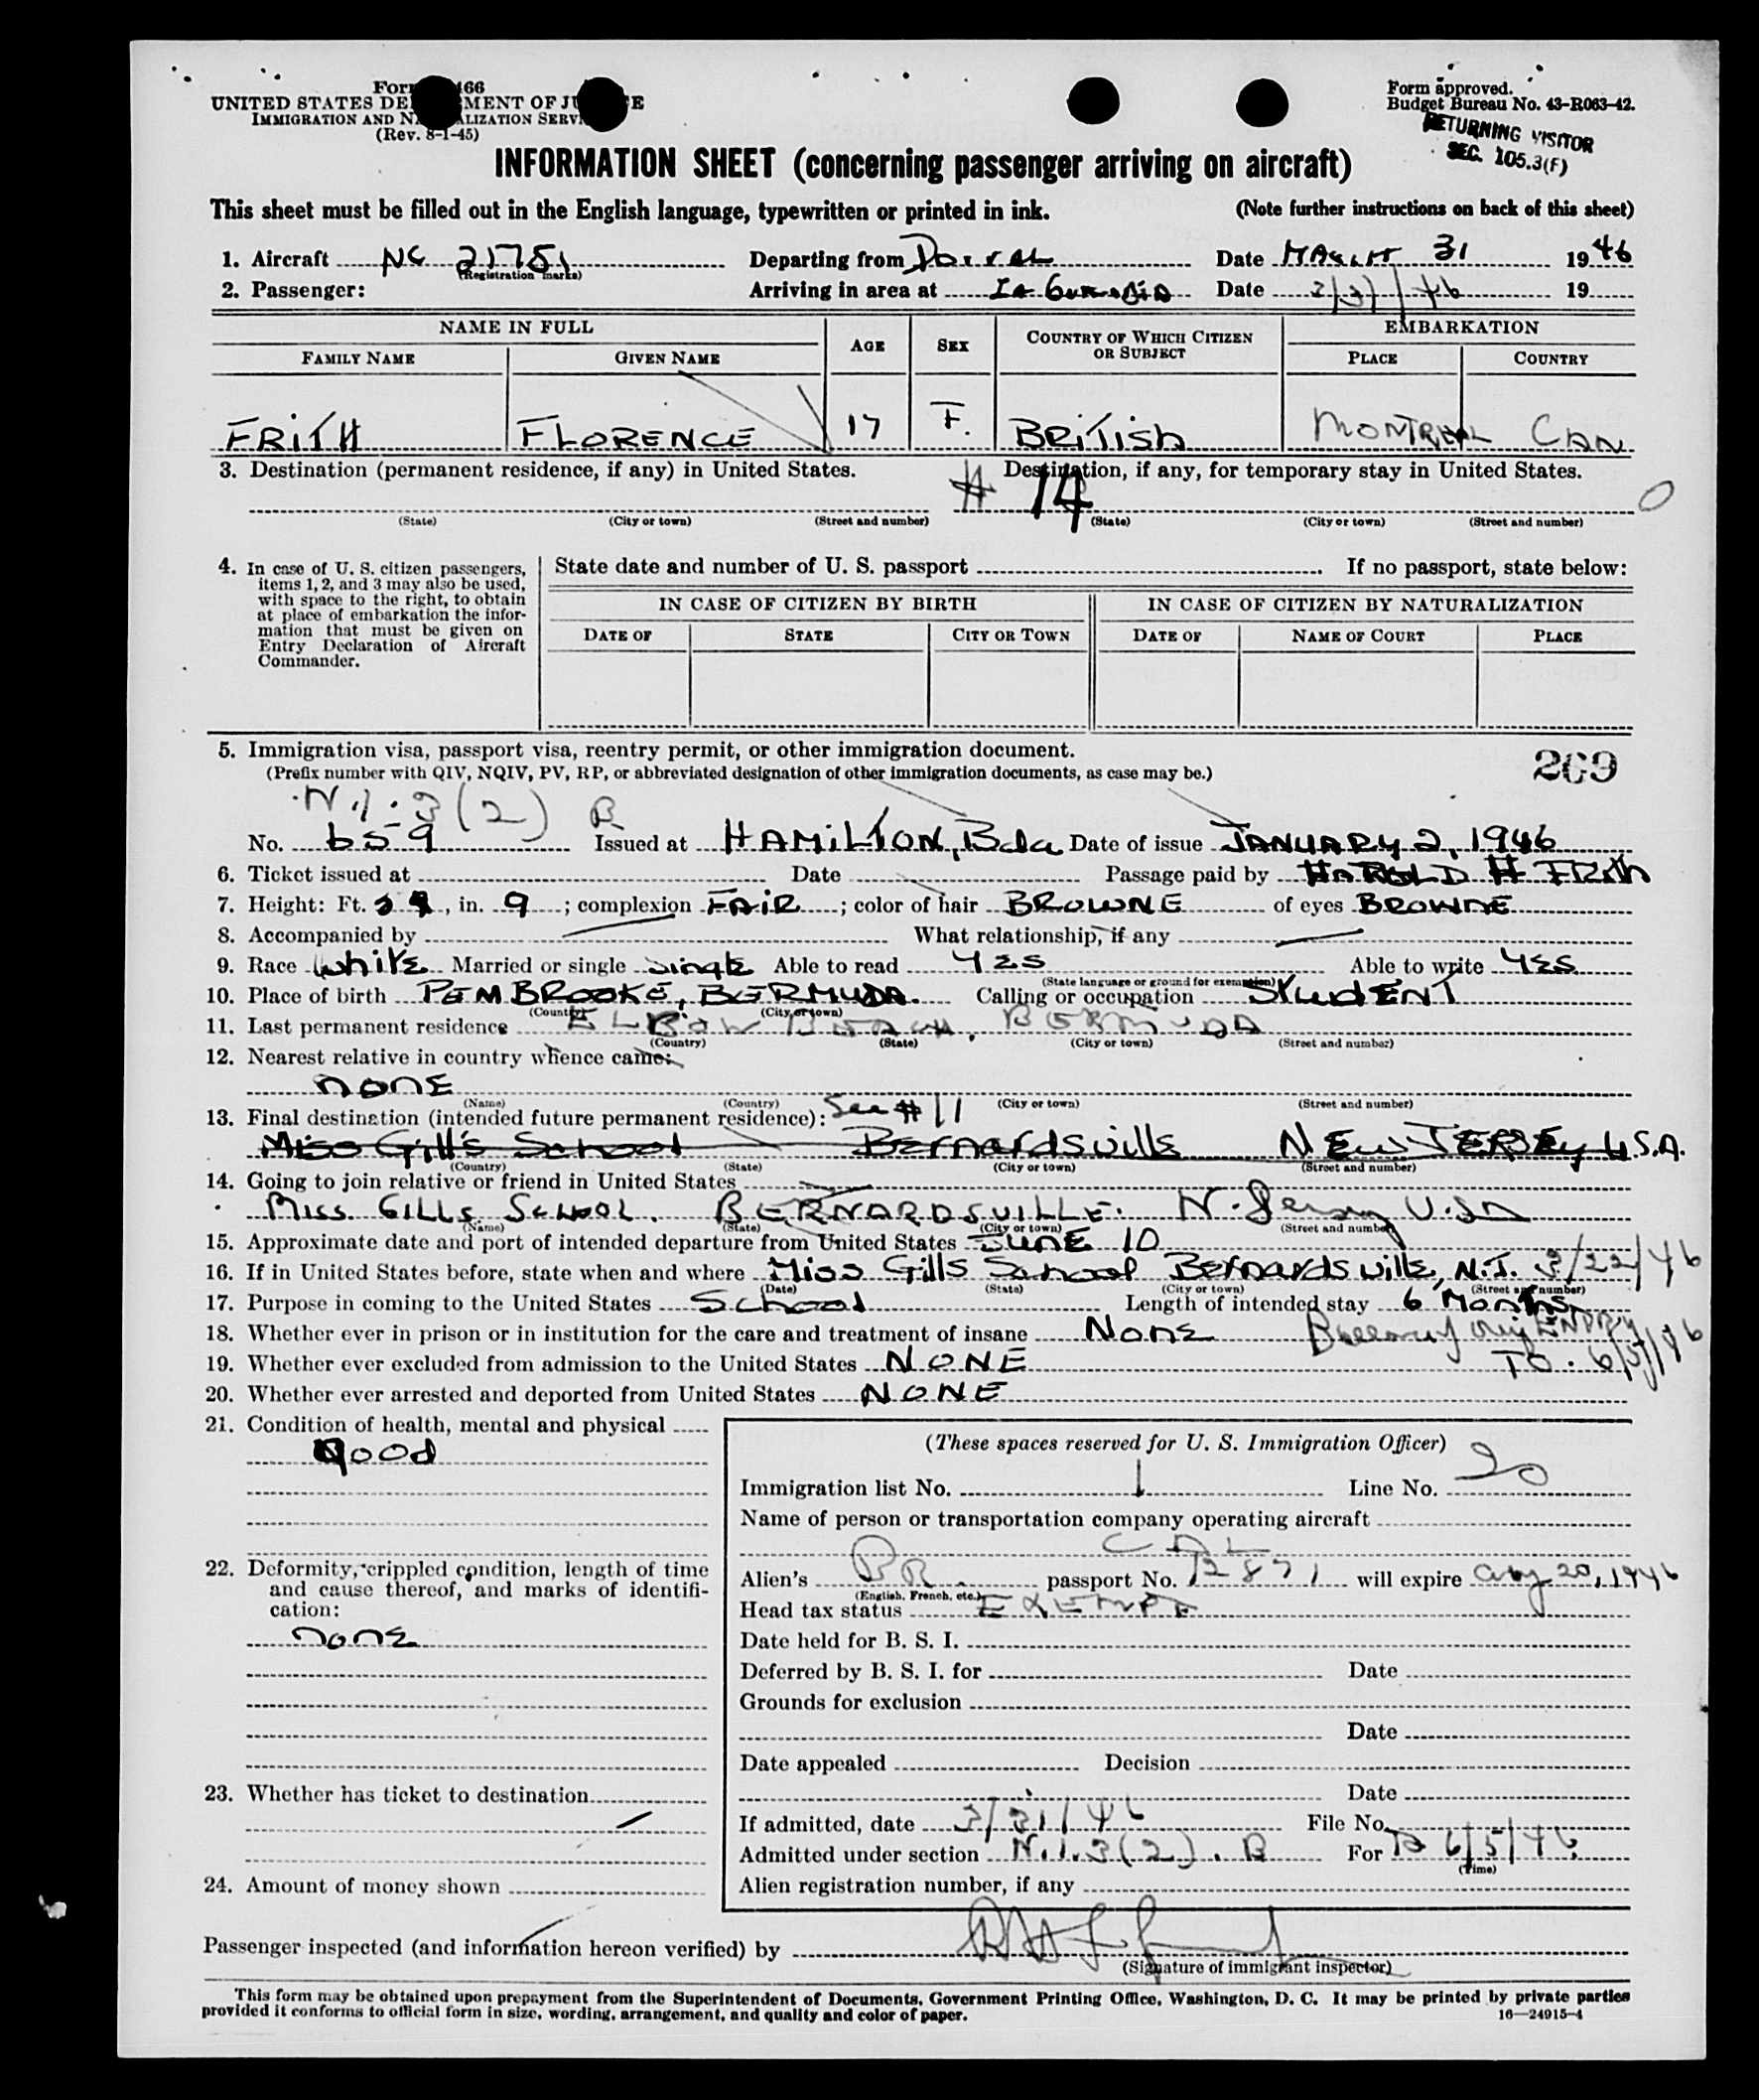 Form 466
UNITED STATES DEPARTMENT OF JUSTICE
IMMIGRATION AND NATURALIZATION SERVICE
(Rev. 8-1-45)
Form approved.
Budget Bureau No. 43-R063-42.
RETURNING VISITOR
SEC. 105.3(F)
INFORMATION SHEET (concerning passenger arriving on aircraft)
This sheet must be filled out in the English language, typewritten or printed in ink. (Note further instructions on back of this sheet)
1. Aircraft NC 21751 Departing from Dorval Date MARCH 31 1946
(Registration marks)
2. Passenger: Arriving in area at La Guardia Date 3/31/46 19
NAME IN FULL AGE SEX COUNTRY OF WHICH CITIZEN OR SUBJECT EMBARKATION
FAMILY NAME GIVEN NAME PLACE COUNTRY
FRITH FLORENCE 17 F. BRITISH MONTREAL CAN
3. Destination (permanent residence, if any) in United States. Destination, if any, for temporary stay in United States.
# 14
(State) (City or town) (Street and number) (State) (City or town) (Street and number)
4. In case of U. S. citizen passengers, items 1, 2, and 3 may also be used, with space to the right, to obtain at place of embarkation the information that must be given on Entry Declaration of Aircraft Commander.
State date and number of U. S. passport If no passport, state below:
IN CASE OF CITIZEN BY BIRTH IN CASE OF CITIZEN BY NATURALIZATION
DATE OF STATE CITY OR TOWN DATE OF NAME OF COURT PLACE
5. Immigration visa, passport visa, reentry permit, or other immigration document.
(Prefix number with QIV, NQIV, PV, RP, or abbreviated designation of other immigration documents, as case may be.)
269
N.I. 3(2) B
No. 659 Issued at HAMILTON, Bda Date of issue JANUARY 2, 1946
6. Ticket issued at Date Passage paid by HAROLD H FRITH
7. Height: Ft. , in. 9 ; complexion FAIR ; color of hair BROWNE of eyes BROWNE
8. Accompanied by What relationship, if any
9. Race White Married or single Single Able to read YES Able to write YES
(State language or ground for exemption)
10. Place of birth PEMBROOKE, BERMUDA. Calling or occupation STUDENT
(Country) (City or town)
11. Last permanent residence ELBOW BEACH, BERMUDA
(Country) (State) (City or town) (Street and number)
12. Nearest relative in country whence came:
NONE
(Name) (Country) (City or town) (Street and number)
13. Final destination (intended future permanent residence): See # 11
Miss Gill's School Bernardsville NEW JERSEY U.S.A.
(Country) (State) (City or town) (Street and number)
14. Going to join relative or friend in United States
MISS. GILLS SCHOOL. BERNARDSVILLE. N. Jersey U.SA
(Name) (State) (City or town) (Street and number)
15. Approximate date and port of intended departure from United States JUNE 10
16. If in United States before, state when and where Miss Gills School Bernardsville, N.J. 3/22/46
(Date) (State) (City or town) (Street and number)
17. Purpose in coming to the United States School Length of intended stay 6 Months
18. Whether ever in prison or in institution for the care and treatment of insane None
19. Whether ever excluded from admission to the United States NONE TO. 6/5/46
20. Whether ever arrested and deported from United States NONE
21. Condition of health, mental and physical
Good
(These spaces reserved for U. S. Immigration Officer)
Immigration list No. 1 Line No. 20
Name of person or transportation company operating aircraft
22. Deformity, crippled condition, length of time and cause thereof, and marks of identification:
none
Alien's BR. passport No. 12871 will expire Aug 20, 1946
(English, French, etc.)
Head tax status EXEMPT
Date held for B. S. I.
Deferred by B. S. I. for Date
Grounds for exclusion
Date
Date appealed Decision
Date
23. Whether has ticket to destination
If admitted, date 3/31/46 File No.
Admitted under section N.I. 3(2). B For To 6/5/46
(Time)
24. Amount of money shown
Alien registration number, if any
Passenger inspected (and information hereon verified) by
(Signature of immigrant inspector)
This form may be obtained upon prepayment from the Superintendent of Documents, Government Printing Office, Washington, D. C. It may be printed by private parties
provided it conforms to official form in size, wording, arrangement, and quality and color of paper. 16—24915-4